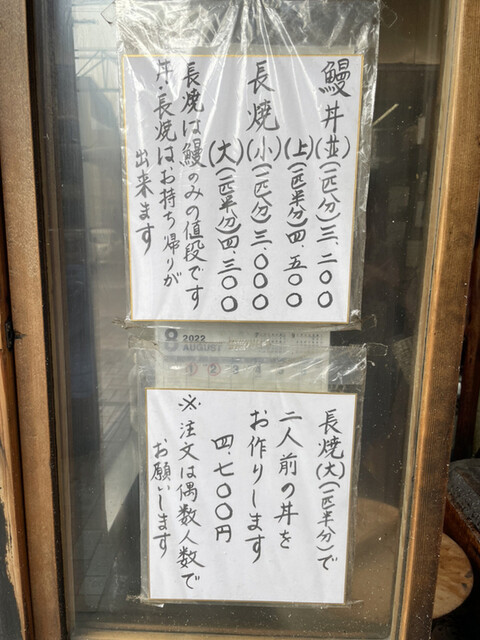 鰻丼(並)(一匹分)三.二〇〇
(上)(一匹半分)四.五〇〇
長焼(小)(一匹分)三.〇〇〇
(大)(一匹半分)四.三〇〇
長焼は鰻のみの値段です
丼・長焼はお持ち帰りが
出来ます
8 2022
AUGUST
1 2 3 4
長焼(大)(一匹半分)で
二人前の丼を
お作りします
四.七〇〇円
※注文は偶数人数で
お願いします